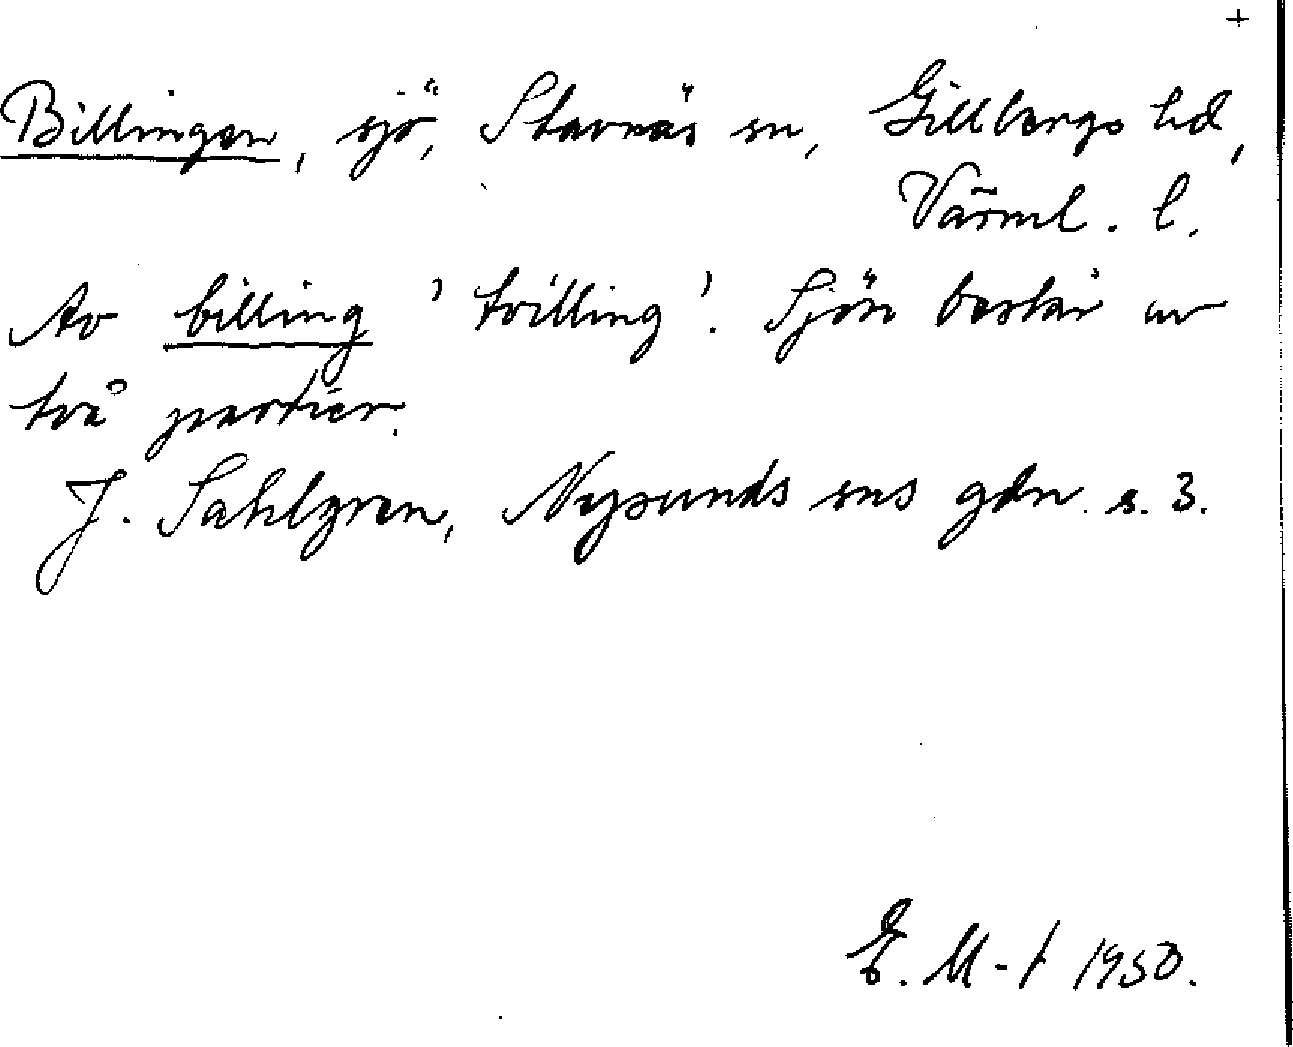 +
Billingen, sjö, Stavnäs sn, Gillbergs hd,
Värml. l.
Av billing 'tvilling'. Sjön består av
två partier.
J. Sahlgren, Nysunds sns gdn. s. 3.
E. M-t 1950.